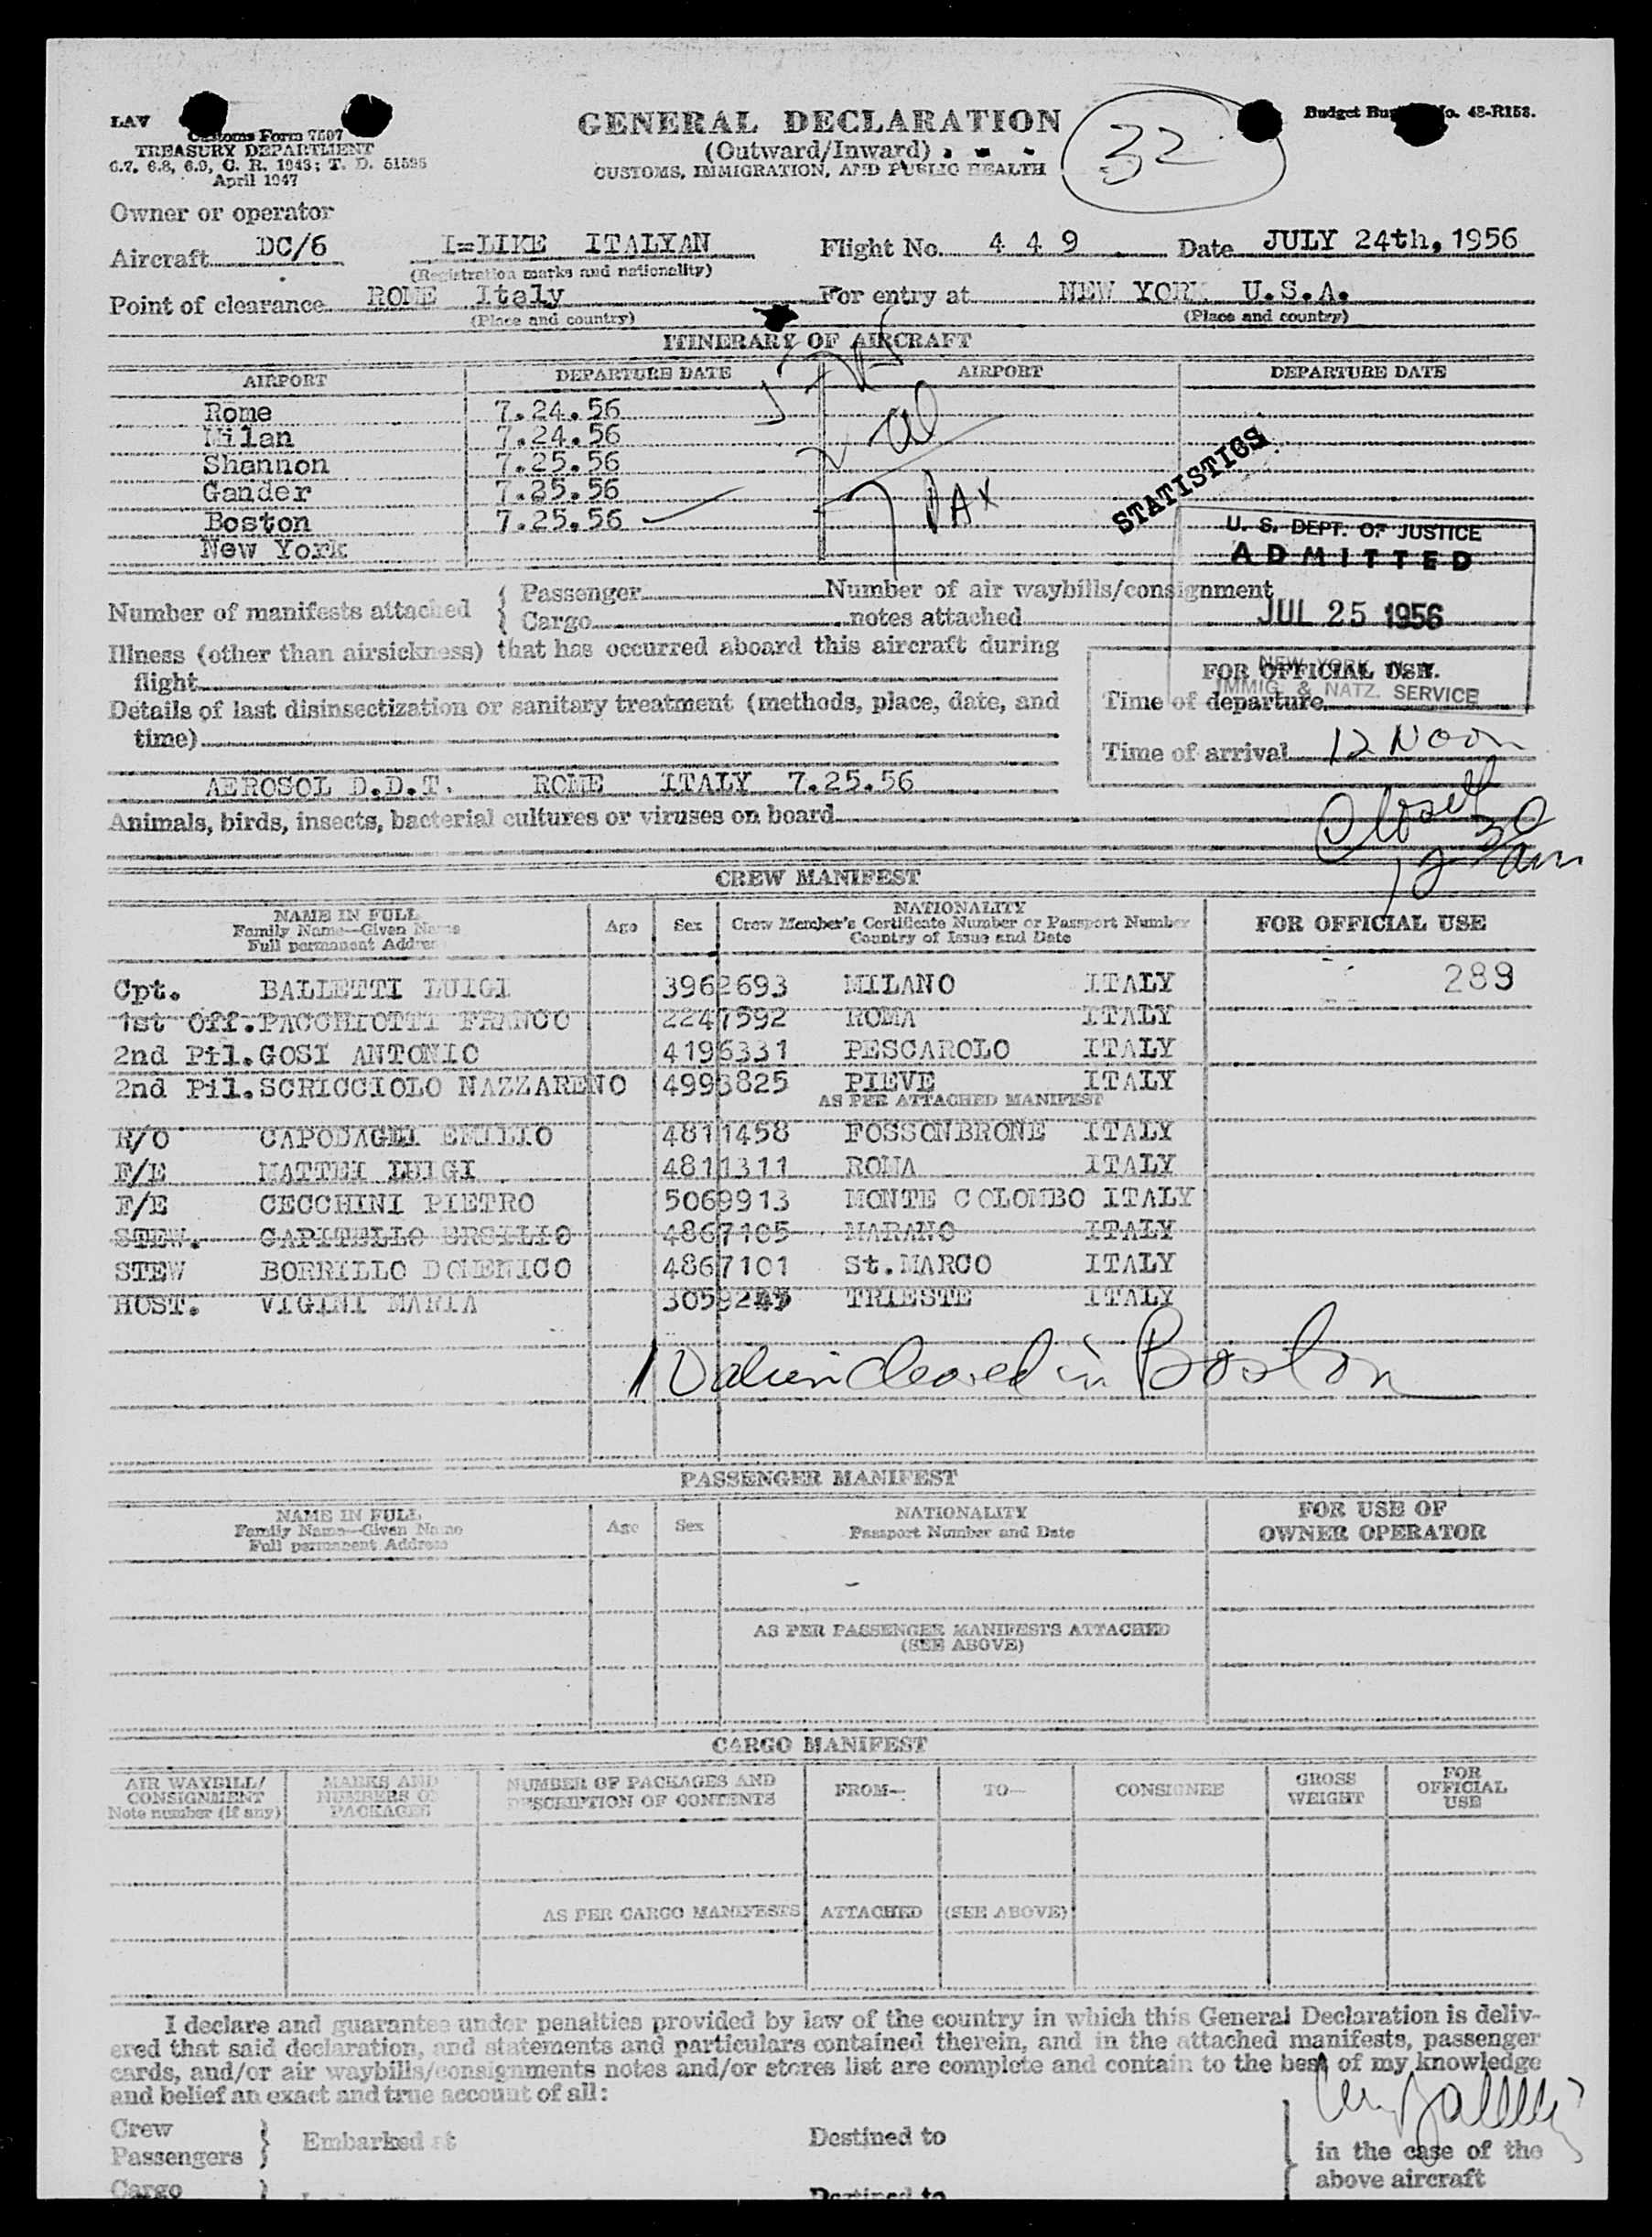 LAV
Customs Form 7507
TREASURY DEPARTMENT
6.7, 6.8, 6.9, C. R. 1943; T. D. 51595
April 1947
GENERAL DECLARATION
(Outward/Inward)
CUSTOMS, IMMIGRATION, AND PUBLIC HEALTH
32
Budget No. 48-R153.
Owner or operator
Aircraft DC/6 I=LIKE ITALYAN Flight No. 4 4 9 Date JULY 24th, 1956
(Registration marks and nationality)
Point of clearance ROME Italy For entry at NEW YORK U.S.A.
(Place and country) (Place and country)
ITINERARY OF AIRCRAFT
AIRPORT DEPARTURE DATE AIRPORT DEPARTURE DATE
Rome 7.24.56
Milan 7.24.56
Shannon 7.25.56
Gander 7.25.56
Boston 7.25.56
New York
7 PAX
STATISTICS
U. S. DEPT. OF JUSTICE
ADMITTED
JUL 25 1956
NEW YORK, N.Y.
IMMIG. & NATZ. SERVICE
Number of manifests attached { Passenger Number of air waybills/consignment
Cargo notes attached
Illness (other than airsickness) that has occurred aboard this aircraft during
flight
Details of last disinsectization or sanitary treatment (methods, place, date, and
time)
AEROSOL D.D.T. ROME ITALY 7.25.56
FOR OFFICIAL USE.
Time of departure
Time of arrival 12 Noon
Animals, birds, insects, bacterial cultures or viruses on board
CREW MANIFEST
NAME IN FULL
Family Name—Given Name
Full permanent Address
Age Sex
NATIONALITY
Crew Member's Certificate Number or Passport Number
Country of Issue and Date
FOR OFFICIAL USE
Cpt. BALLETTI LUIGI 3962693 MILANO ITALY 289
1st Off. PACCHIOTTI FRANCO 2247592 ROMA ITALY
2nd Pil. GOSI ANTONIO 4196331 PESCAROLO ITALY
2nd Pil. SCRICCIOLO NAZZARENO 4993825 PIEVE ITALY
AS PER ATTACHED MANIFEST
R/O CAPODAGLI EMILIO 4811458 FOSSONBRONE ITALY
F/E MATTEI LUIGI 4811311 ROMA ITALY
F/E CECCHINI PIETRO 5069913 MONTE COLOMBO ITALY
STEW. CAPITELLO ERSILIO 4867105 MARANO ITALY
STEW BORRILLO DOMENICO 4867101 St.MARCO ITALY
HOST. VIGINI MARIA 3059245 TRIESTE ITALY
cleared in Boston
PASSENGER MANIFEST
NAME IN FULL
Family Name—Given Name
Full permanent Address
Age Sex
NATIONALITY
Passport Number and Date
FOR USE OF
OWNER OPERATOR
AS PER PASSENGER MANIFESTS ATTACHED
(SEE ABOVE)
CARGO MANIFEST
AIR WAYBILL/
CONSIGNMENT
Note number (if any)
MARKS AND
NUMBERS ON
PACKAGES
NUMBER OF PACKAGES AND
DESCRIPTION OF CONTENTS
FROM— TO— CONSIGNEE
GROSS
WEIGHT
FOR
OFFICIAL
USE
AS PER CARGO MANIFESTS ATTACHED (SEE ABOVE)
I declare and guarantee under penalties provided by law of the country in which this General Declaration is deliv-
ered that said declaration, and statements and particulars contained therein, and in the attached manifests, passenger
cards, and/or air waybills/consignments notes and/or stores list are complete and contain to the best of my knowledge
and belief an exact and true account of all:
Crew
Passengers } Embarked at Destined to
in the case of the
above aircraft
Cargo Destined to